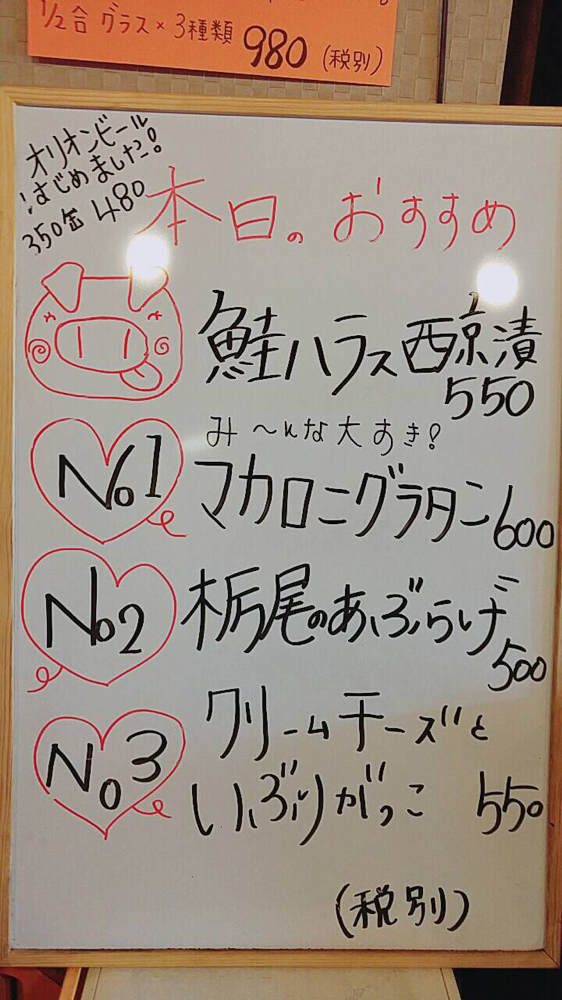 1/2合 グラス×3種類 980 (税別)
オリオンビール
はじめました!
350缶 480
本日のおすすめ
鮭ハラス西京漬
550
み〜んな大すき!
No1 マカロニグラタン 600
No2 栃尾のあぶらげ
500
クリームチーズと
No3 いぶりがっこ 550
(税別)